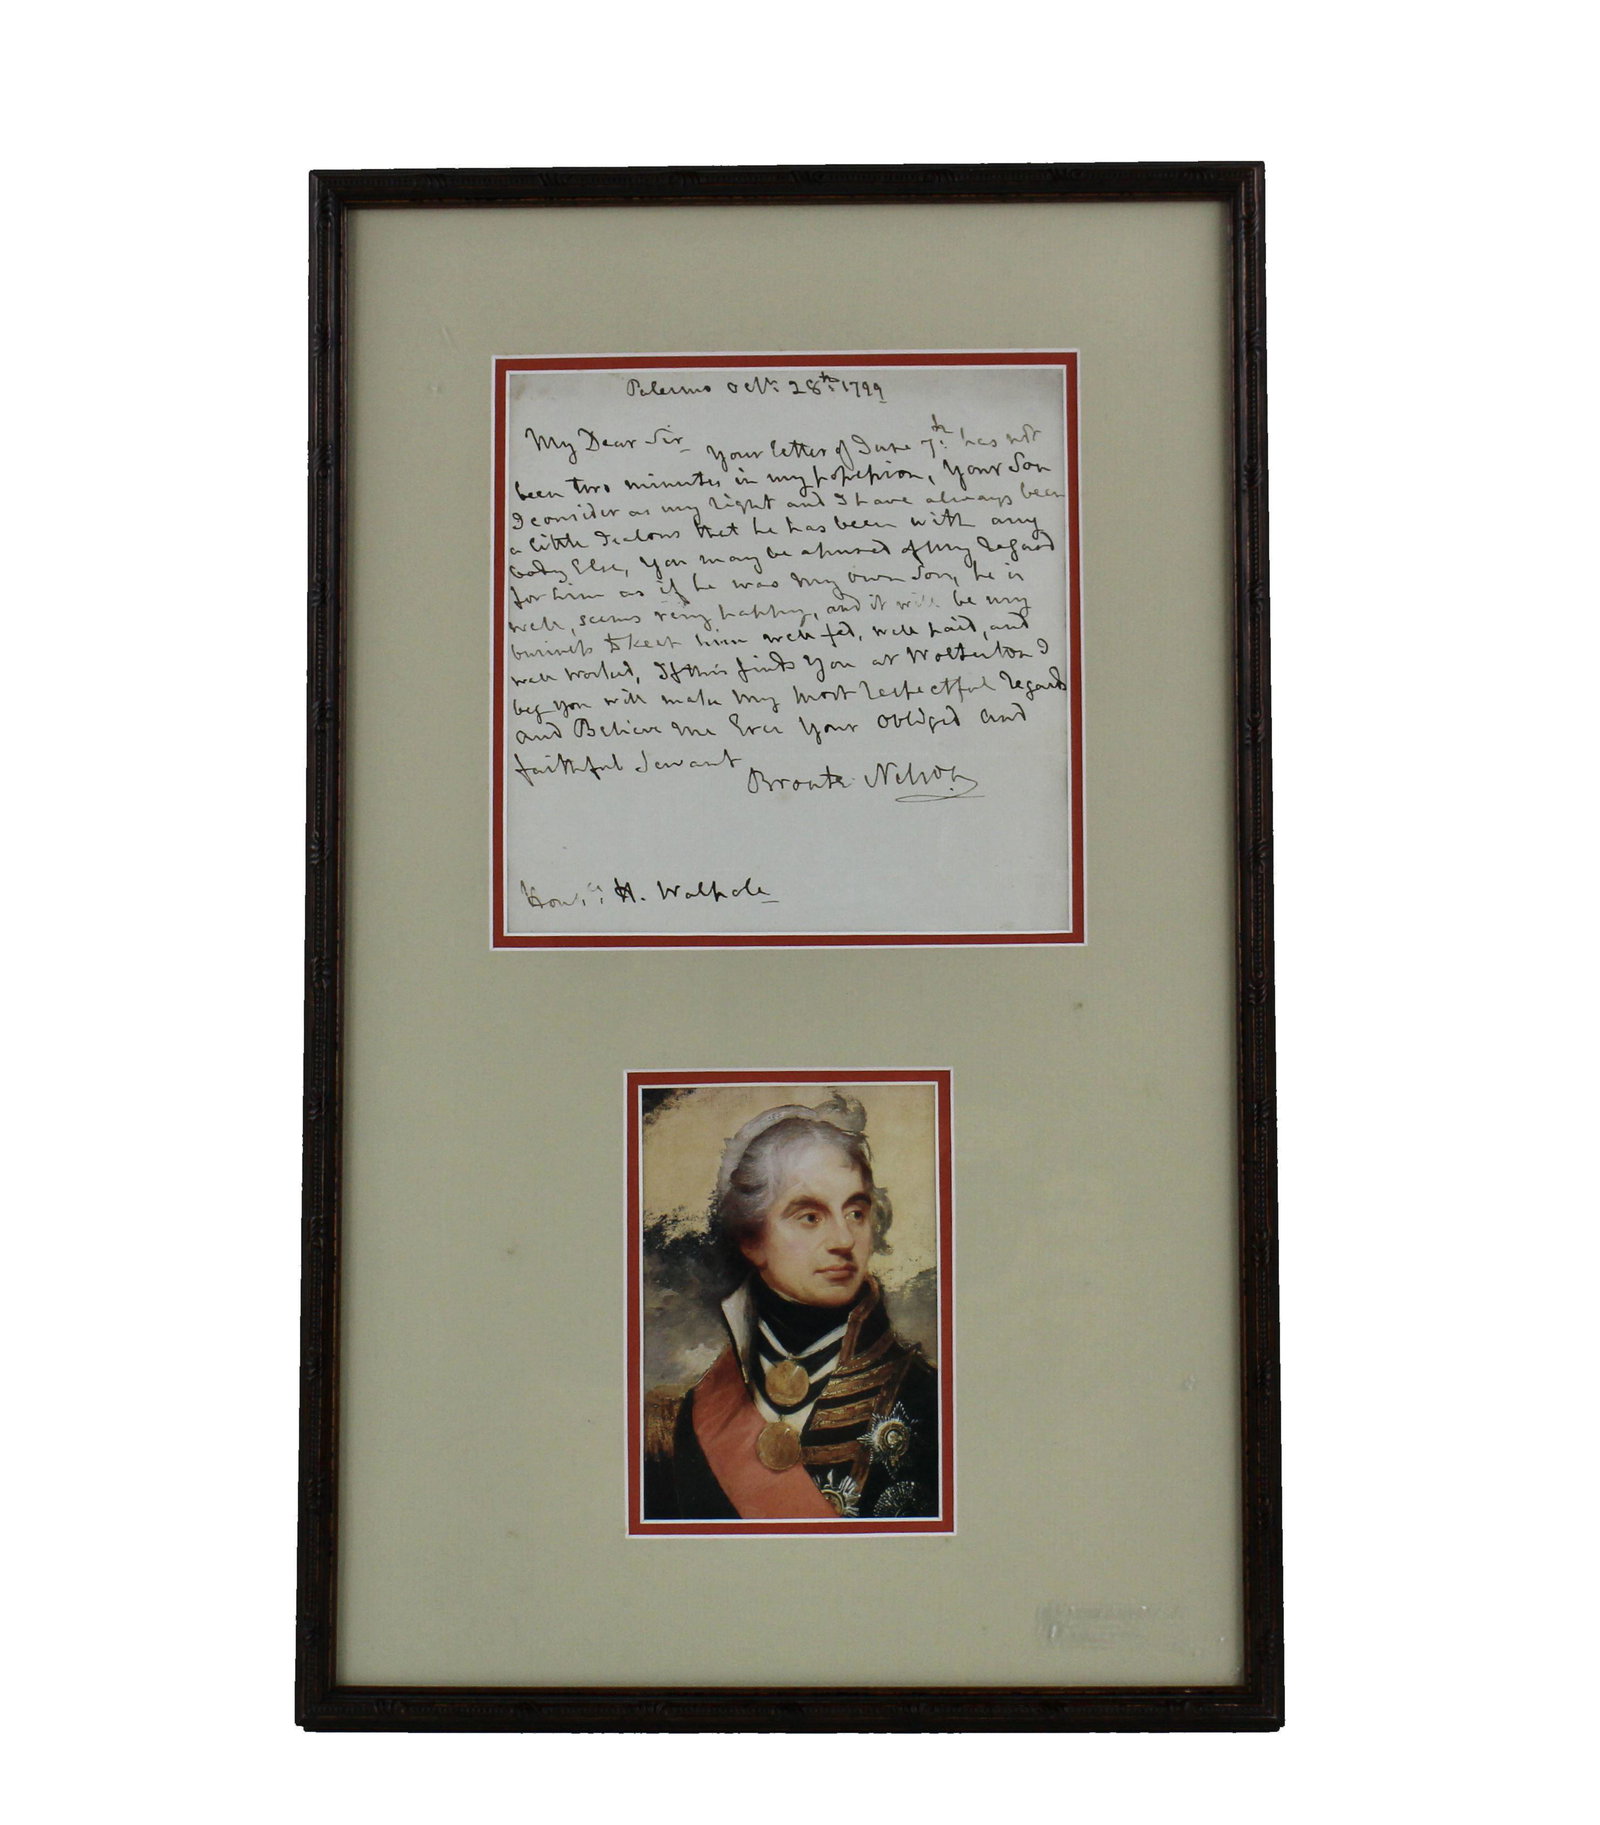 Palermo Octr: 28th: 1799
My Dear Sir Your letter of June 7th: has not
been two minutes in my possession, Your Son
I consider as my right and I have always been
a little Jealous that he has been with any
body Else, You may be assured of My regard
for him as if he was My own Son, he is
well, seems very happy, and it will be my
business to keep him well fed, well paid, and
well worked, If this finds You at Wolterton I
beg you will make My most respectful regards
and Believe Me Ever Your Obliged and
faithful Servant
Bronte Nelson
H. Walpole